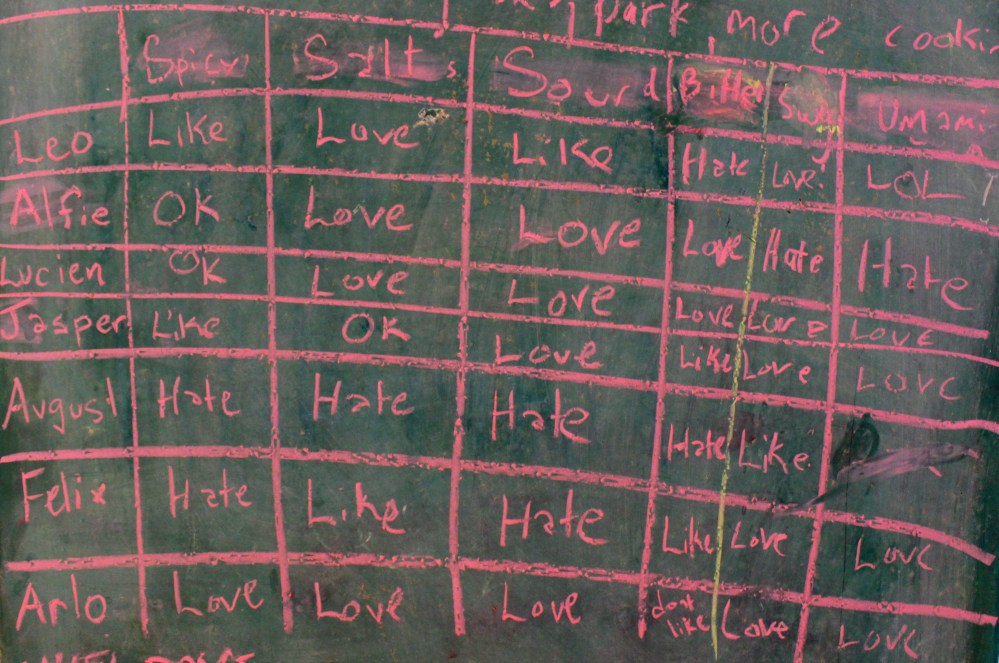 park more
Spicy Salt Sour Bitter Umami
Leo Like Love Like Hate Love! LOL
Alfie OK Love Love Love Hate Hate
Lucien OK Love Love Love Love
Jasper Like OK Love Like Love Love
August Hate Hate Hate Hate Like
Felix Hate Like Hate Like Love Love
Arlo Love Love Love dont like Love Love